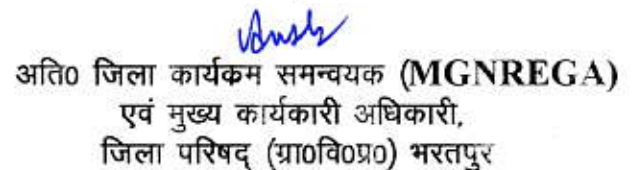 अति० जिला कार्यकम समन्वयक (MGNREGA)
एवं मुख्य कार्यकारी अधिकारी,
जिला परिषद् (ग्रा०वि०प्र०) भरतपुर